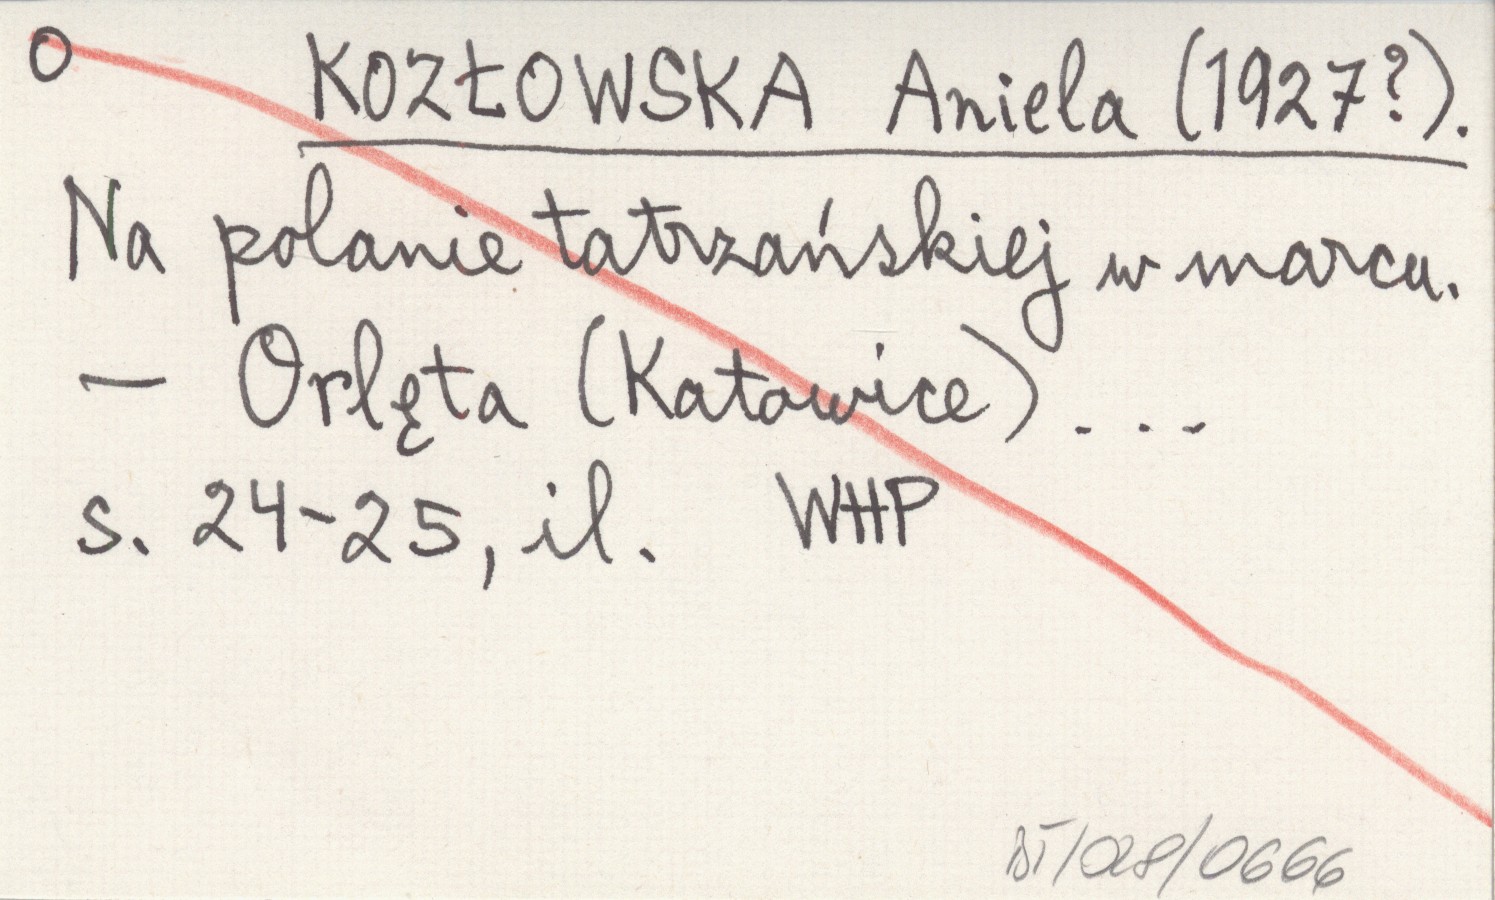 O KOZŁOWSKA Aniela (1927?).
Na polanie tatrzańskiej w marcu.
— Orlęta (Katowice) ...
s. 24-25, il. WHP
BT/028/0666